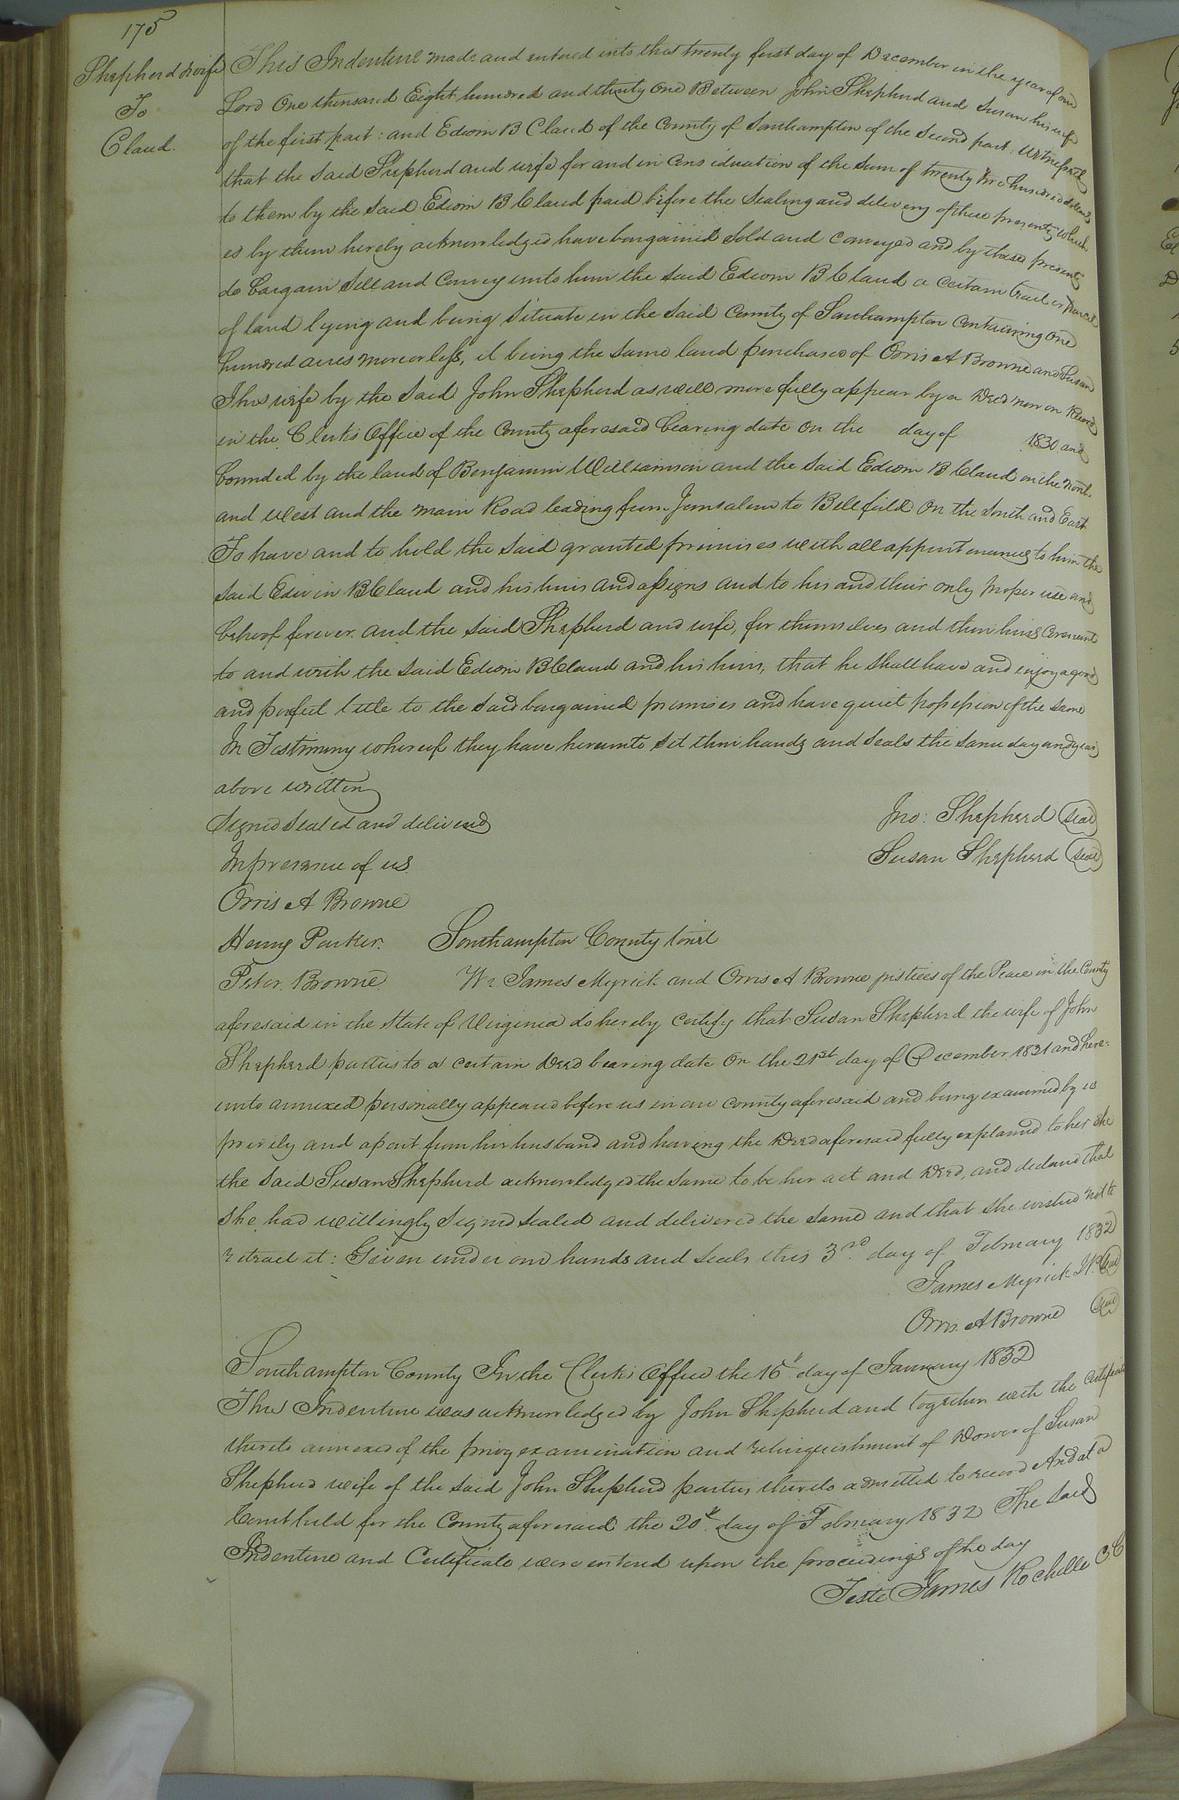 175
Shepherd & wife
To
Claud.
This Indenture made and entered into this twenty first day of December in the year of our
Lord One thousand Eight hundred and thirty One Between John Shepherd and Susan his wife
of the first part: and Edwin B Claud of the County of Southampton of the Second part: Witnesseth
that the said Shepherd and wife for and in Consideration of the Sum of twenty five hundred dollars
to them by the said Edwin B Claud paid before the Sealing and delivery of these presents, which
is by them hereby acknowledged have bargained Sold and Conveyed and by these presents
do bargain Sell and Convey unto him the said Edwin B Claud a Certain tract or parcel
of land lying and being Situate in the Said County of Southampton Containing One
hundred acres more or less, it being the same land purchased of Orris A Browne and Susan
J his wife by the said John Shepherd as will more fully appear by a Deed now on Record
in the Clerks Office of the County aforesaid bearing date on the day of 1830 and
bounded by the land of Benjamin Williamson and the said Edwin B. Claud on the North
and West and the main Road leading from Jerusalem to Bellfield On the South and East
To have and to hold the Said granted premises with all appurtenances to him the
said Edwin B Claud and his heirs and assigns and to his and their only proper use and
behoof forever. and the said Shepherd and wife, for themselves and their heirs Covenant
to and with the said Edwin B Claud and his heirs, that he shall have and enjoy a good
and perfect title to the said bargained premises and have quiet possession of the same
In Testimony whereof they have hereunto Set their hands and Seals the same day and year
above written
Signed Sealed and delivered
Jno: Shepherd Seal
In presence of us
Susan Shepherd Seal
Orris A Browne
Henry Parker. Southampton County towit
Peter Browne We James Myrick and Orris A Browne justices of the Peace in the County
aforesaid in the State of Virginia do hereby Certify that Susan Shepherd the wife of John
Shepherd parties to a certain Deed bearing date On the 21st day of December 1831 and here-
unto annexed personally appeared before us in our County aforesaid and being examined by us
privily and apart from her husband and having the Deed aforesaid fully explained to her She
the said Susan Shepherd acknowledged the same to be her act and Deed, and declared that
she had willingly Signed Sealed and delivered the same and that she wished not to
retract it: Given under our hands and Seals this 3rd day of February 1832
James Myrick Seal
Orris A Browne Seal
Southampton County In the Clerks Office the 16th day of January 1832
This Indenture was acknowledged by John Shepherd and together with the Certificate
thereto annexed of the privy examination and relinquishment of Dower of Susan
Shepherd wife of the said John Shepherd parties thereto admitted to record And at a
Court held for the County aforesaid the 20th day of February 1832 The said
Indenture and Certificate were entered upon the proceedings of the day
Teste James Rochelle C C